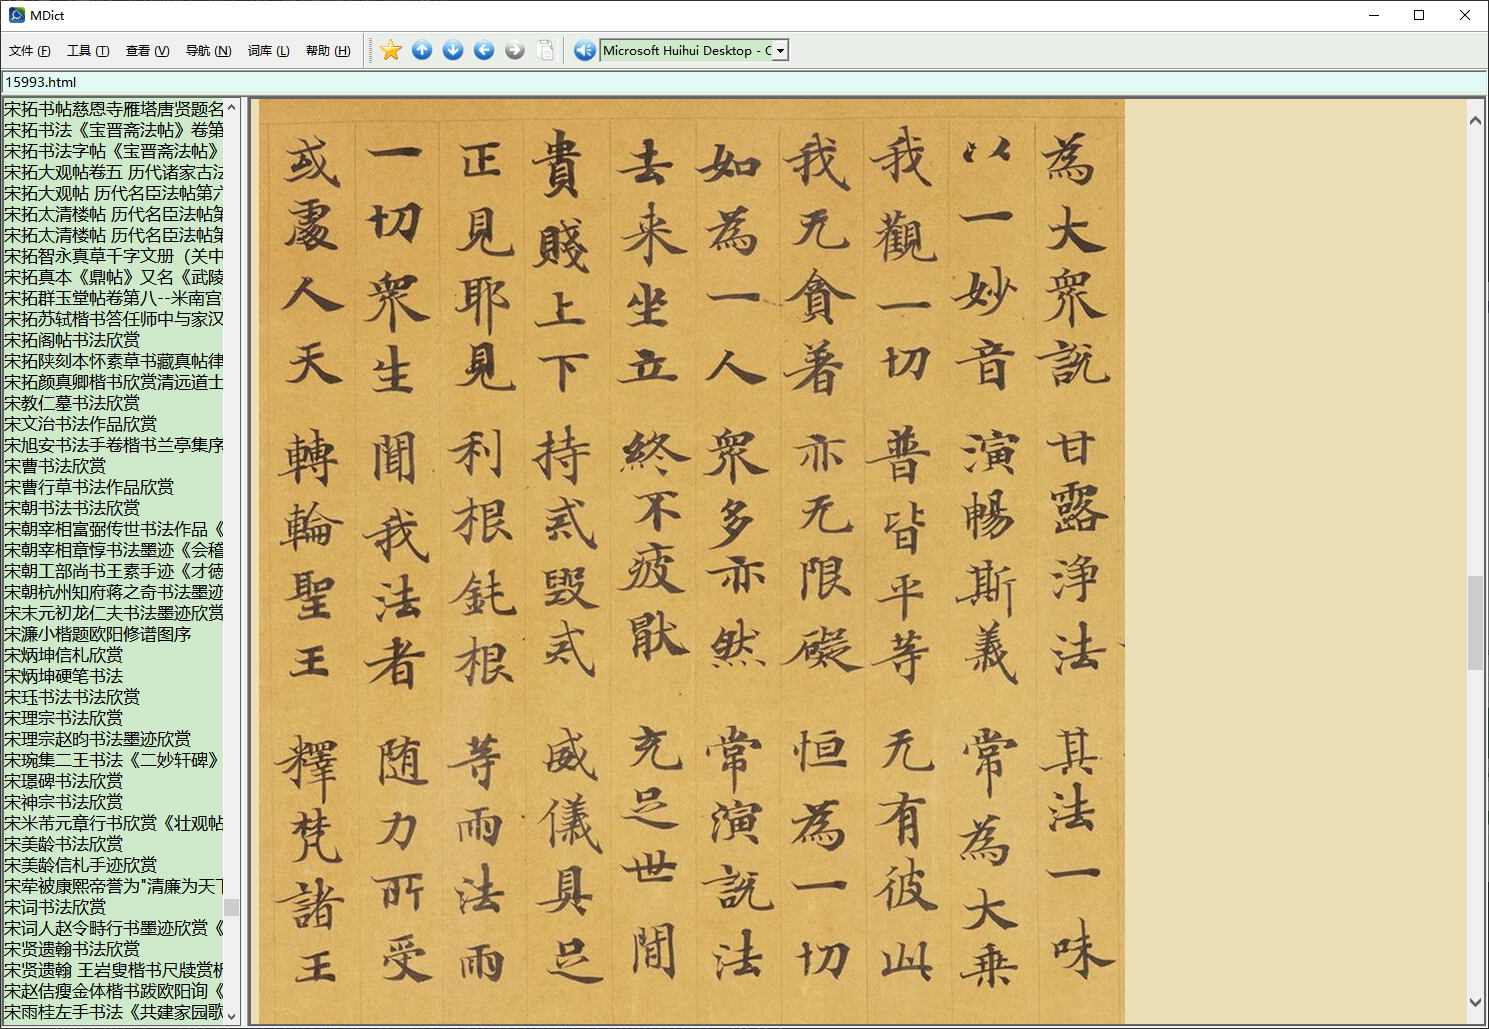 MDict
文件 (F) 工具 (T) 查看 (V) 导航 (N) 词库 (L) 帮助 (H) Microsoft Huihui Desktop - C
15993.html
宋拓书帖慈恩寺雁塔唐贤题名
宋拓书法《宝晋斋法帖》卷第
宋拓书法字帖《宝晋斋法帖》
宋拓大观帖卷五 历代诸家古法
宋拓大观帖 历代名臣法帖第六
宋拓太清楼帖 历代名臣法帖第
宋拓太清楼帖 历代名臣法帖第
宋拓智永真草千字文册（关中
宋拓真本《鼎帖》又名《武陵
宋拓群玉堂帖卷第八--米南宫
宋拓苏轼楷书答任师中与家汉
宋拓阁帖书法欣赏
宋拓陕刻本怀素草书藏真帖律
宋拓颜真卿楷书欣赏清远道士
宋教仁墓书法欣赏
宋文治书法作品欣赏
宋旭安书法手卷楷书兰亭集序
宋曹书法欣赏
宋曹行草书法作品欣赏
宋朝书法书法欣赏
宋朝宰相富弼传世书法作品《
宋朝宰相章惇书法墨迹《会稽
宋朝工部尚书王素手迹《才德
宋朝杭州知府蒋之奇书法墨迹
宋末元初龙仁夫书法墨迹欣赏
宋濂小楷题欧阳修谱图序
宋炳坤信札欣赏
宋炳坤硬笔书法
宋珏书法书法欣赏
宋理宗书法欣赏
宋理宗赵昀书法墨迹欣赏
宋琬集二王书法《二妙轩碑》
宋璟碑书法欣赏
宋神宗书法欣赏
宋米芾元章行书欣赏《壮观帖
宋美龄书法欣赏
宋美龄信札手迹欣赏
宋荦被康熙帝誉为"清廉为天下
宋词书法欣赏
宋词人赵令畤行书墨迹欣赏《
宋贤遗翰书法欣赏
宋贤遗翰 王岩叟楷书尺牍赏析
宋赵佶瘦金体楷书跋欧阳询《
宋雨桂左手书法《共建家园歌
為大眾說甘露淨法其法一味
以一妙音演暢斯義常為大乘
我觀一切普皆平等无有彼此
我无貪著亦无限礙恒為一切
如為一人眾多亦然常演說法
去来坐立終不疲猒充足世間
貴賤上下持戒毀戒威儀具足
正見耶見利根鈍根等雨法雨
一切眾生聞我法者随力所受
或處人天轉輪聖王釋梵諸王